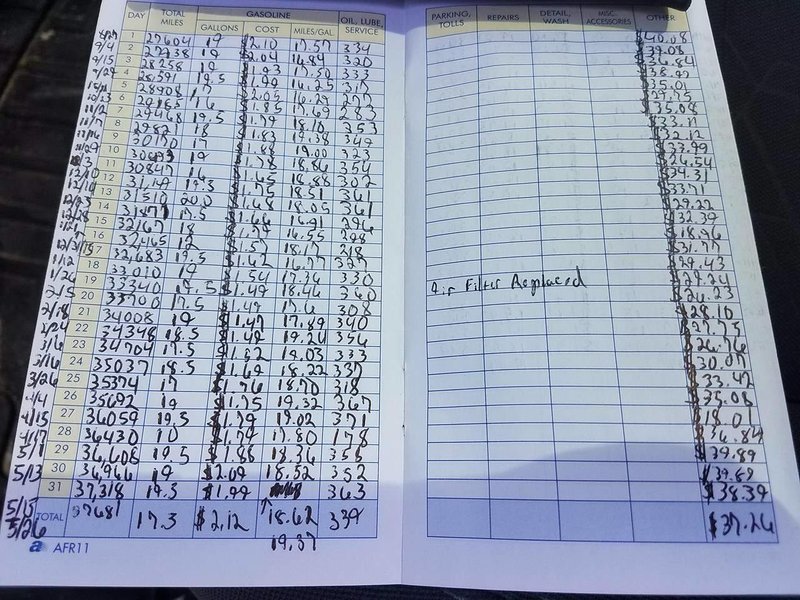 DAY TOTAL MILES GASOLINE OIL, LUBE, SERVICE PARKING, TOLLS REPAIRS DETAIL, WASH MISC. ACCESSORIES OTHER
GALLONS COST MILES/GAL
8/27 1 27604 19 $2.10 17.57 334 $40.08
9/4 2 27938 19 2.04 16.84 320 39.08
9/15 3 28258 19 1.93 17.50 333 36.84
9/24 4 28591 19.5 1.99 16.25 317 38.99
5 28908 17 2.05 16.29 277 35.01
10/23 6 29185 16 1.85 17.69 283 29.75
11/2 7 29468 19.5 1.79 18.10 353 35.08
11/7 8 29821 18 1.83 19.38 349
9 30170 17 1.88 19.00 323 32.12
10 30493 19 1.78 18.86 354 33.99
11 30847 16 1.65 18.88 302 26.54
12/10 12 31,149 19.3 1.75 18.51 361 34.31
13 31510 20.0 1.68 18.05 361 33.71
12/23 14 31871 17.5 1.66 16.91 296 29.22
12/28 15 32167 18 1.79 16.55 298 32.39
16 32,465 12 1.57 18.17 218 18.96
17 32,683 19.5 1.62 16.77 327 31.77
1/12 18 33,010 19 1.54 17.36 330 29.43
1/26 19 33340 19.5 $1.49 18.46 360 29.24
2/5 20 33700 17.5 1.49 17.6 308 Air Filter Replaced 26.23
2/18 21 34008 19 $1.47 17.89 340 $28.10
2/24 22 34348 18.5 $1.49 19.24 356 27.75
3/6 23 34704 17.5 19.03 333 26.76
3/16 24 35037 18.5 $1.62 18.22 337 30.07
3/26 25 35374 17 $1.76 18.70 318 33.42
4/4 26 35692 19 $1.75 19.32 367 35.08
4/15 27 36059 19.5 $1.79 19.02 371 18.01
4/17 28 36430 10 $1.79 17.80 178 36.84
5/1 29 36,608 19.5 $1.88 18.36 358 $39.89
5/13 30 36,966 19 $2.09 18.52 352 $39.89
31 37,318 19.3 $1.99 363 $38.39
5/15 TOTAL 37681 17.3 $2.12 18.62 339 $37.26
5/26 19.37
a AFR11